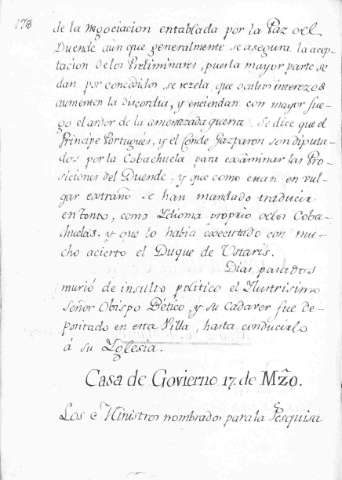 178
de la negociacion entablada por la Paz del
Duende aunque generalmente se asegura la acep
tacion de los Preliminares, pues la mayor parte se
dan por concedidos, se rezela, que ocultos interezes
aumenten la discordia, y enciendan con mayor fue-
go el ardor de la amenazada guerra. Se dice que el
Principe Portugues, y el Conde Gazparon son diputa-
dos por la Cobachuela para examinar las Pro
siciones del Duende, y que como estan en vul-
gar extraño se han mandado traducir
en tonto, como Idioma proprio de los Coba-
chuelas, y que lo habia executado con mu-
cho acierto el Duque de Utaris.
Dias pasados
murió de insulto politico el Ilustrissimo
Señor Obispo Bietico y su Cadaver fue de-
positado en esta Villa, hasta conducirlo
á su Yglesia.
Casa de Govierno 17. de Mzo.
Los Ministros nombrados para la Pesquisa